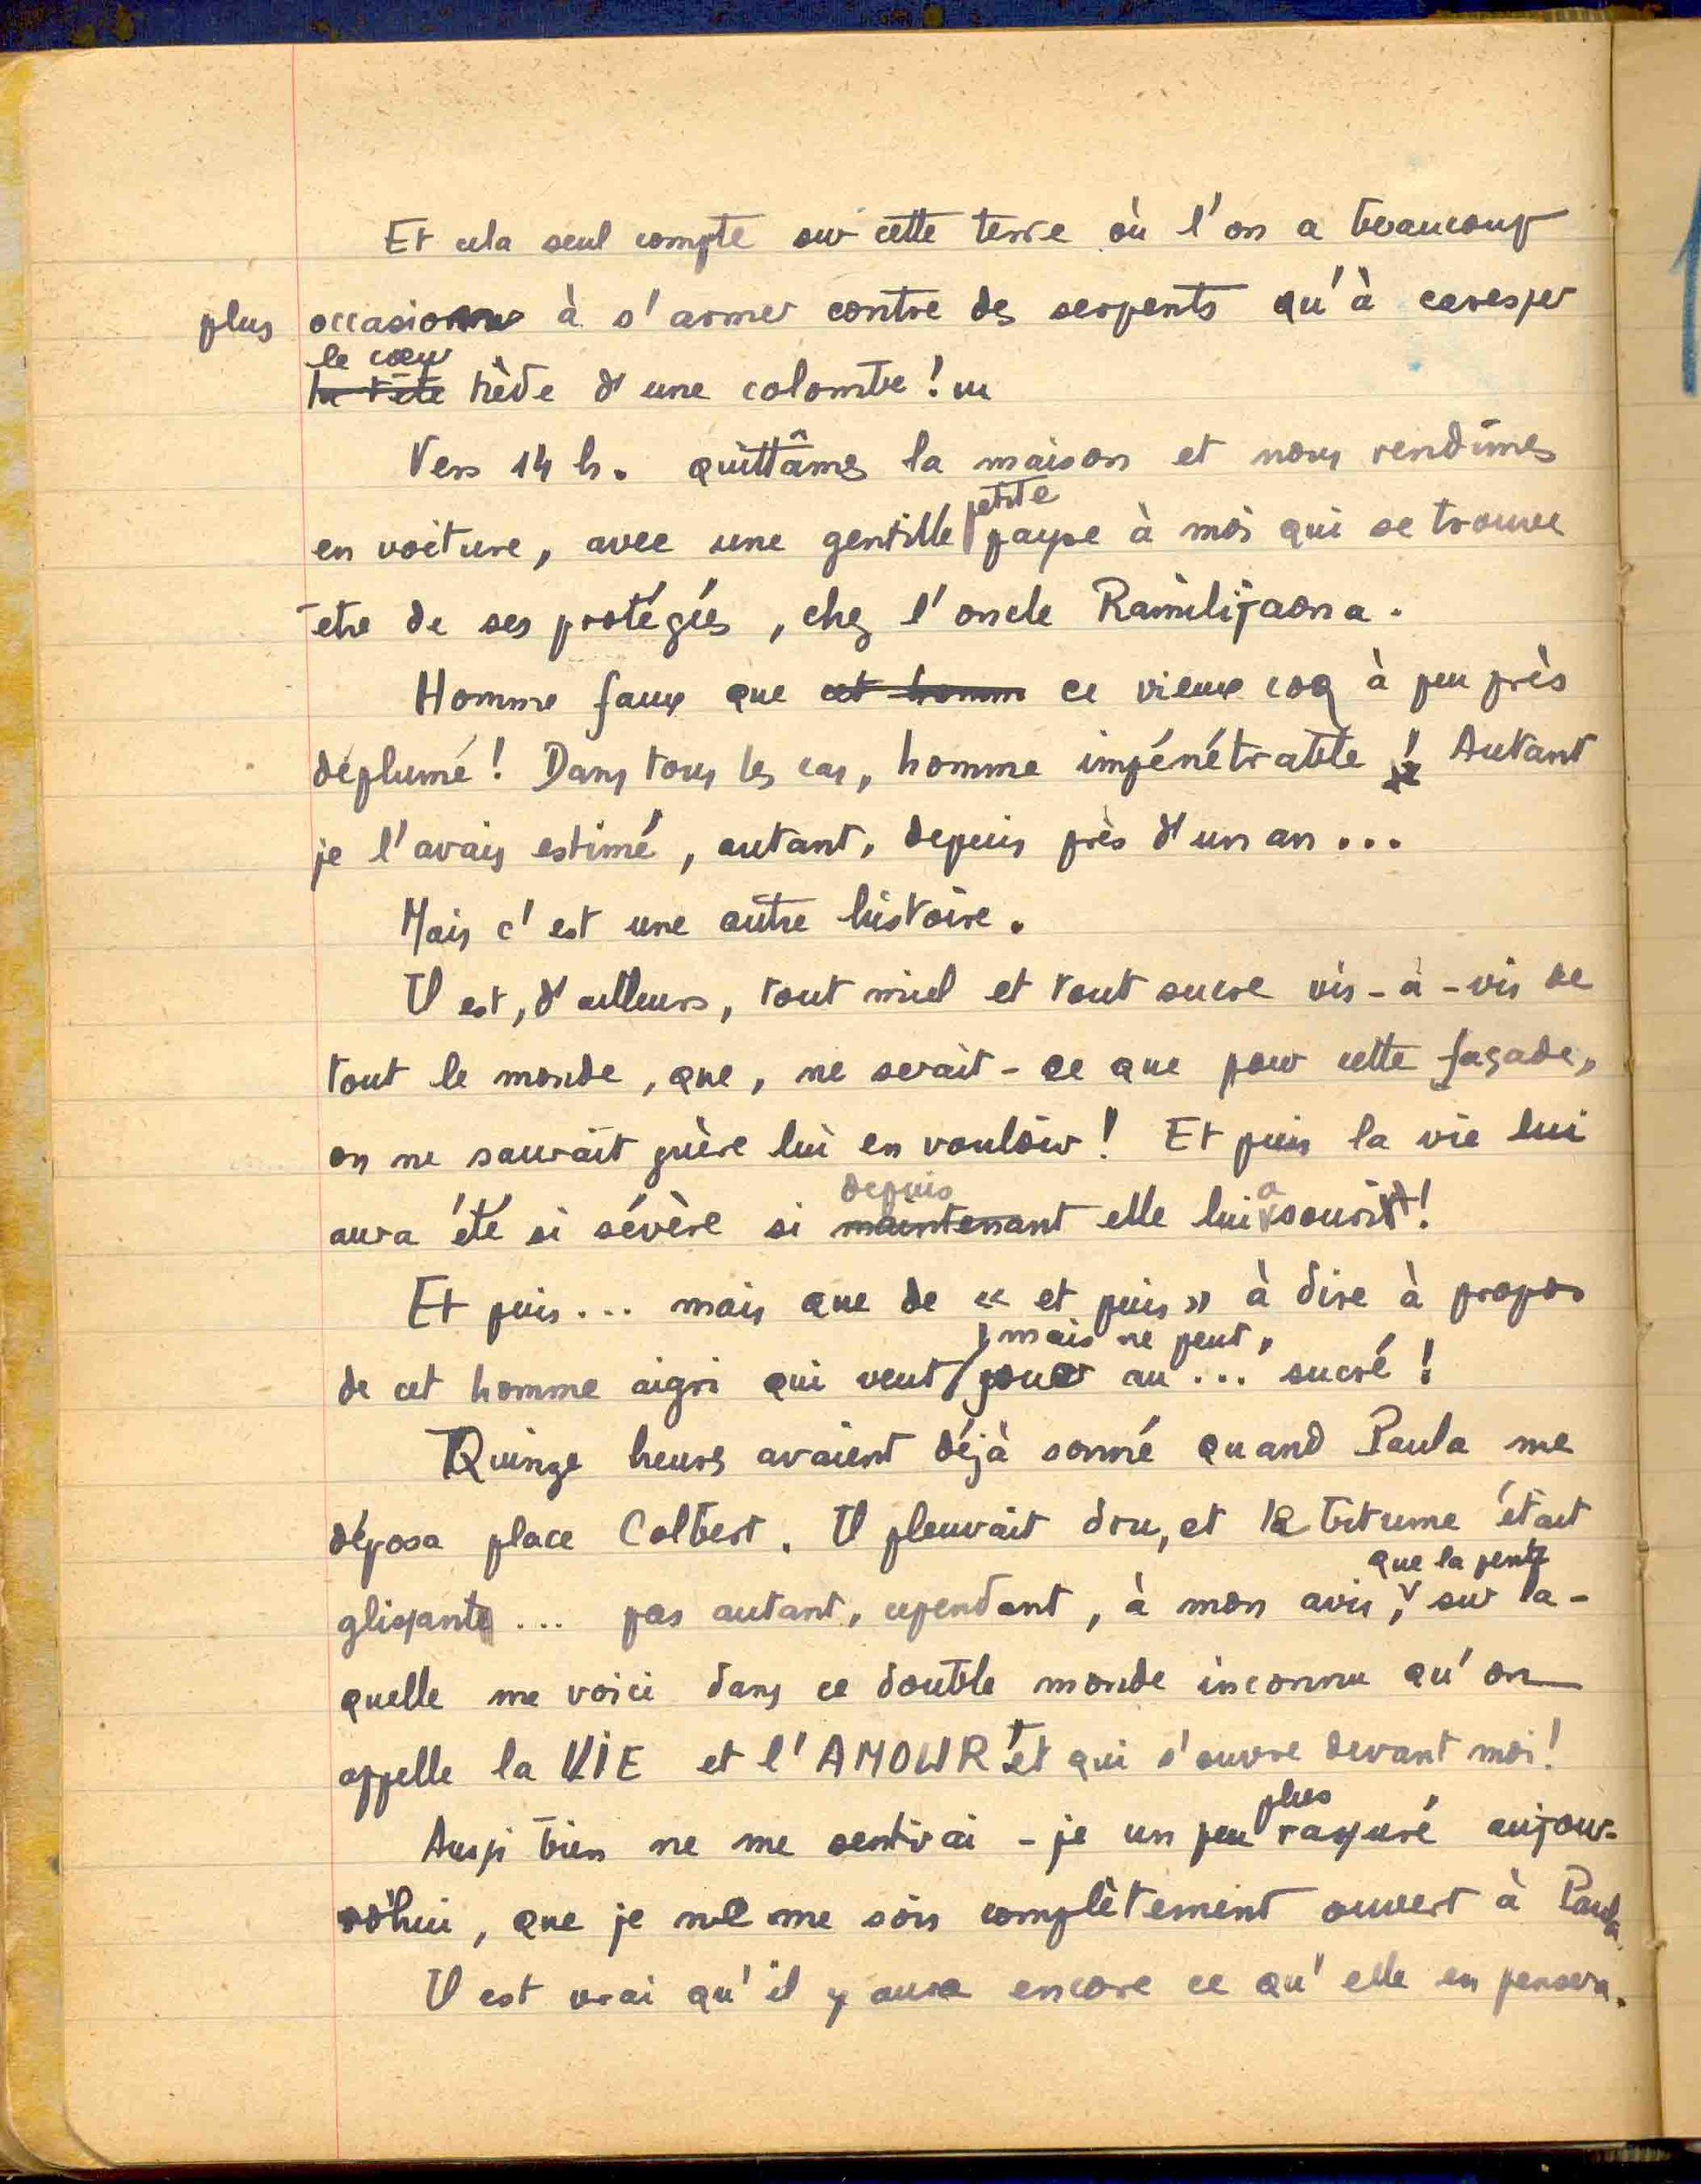 Et cela seul compte sur cette terre où l'on a beaucoup
plus occasion à s'armer contre des serpents qu'à caresser
le cœur
la tête tiède d'une colombe !...
Vers 14 h. quittâmes la maison et nous rendîmes
petite
en voiture, avec une gentille payse à moi qui se trouve
être de ses protégées, chez l'oncle Rainilijaona.
Homme faux que cet homm ce vieux coq à peu près
déplumé ! Dans tous les cas, homme impénétrable ! Autant
je l'avais estimé, autant, depuis près d'un an...
Mais c'est une autre histoire.
Il est, d'ailleurs, tout miel et tout sucre vis-à-vis de
tout le monde, que, ne serait-ce que pour cette façade,
on ne saurait guère lui en vouloir ! Et puis la vie lui
depuis a
aura été si sévère si maintenant elle lui sourit !
Et puis... mais que de « et puis » à dire à propos
, mais ne peut,
de cet homme aigri qui veut jouer au... sucré !
Quinze heures avaient déjà sonné quand Paula me
déposa place Colbert. Il pleuvait dru, et le bitume était
que la pente
glissant ... pas autant, cependant, à mon avis, sur la-
quelle me voici dans ce double monde inconnu qu'on
appelle la VIE et l'AMOUR et qui s'ouvre devant moi !
plus
Aussi bien ne me sentirai-je un peu rassuré aujour-
d'hui, que je ne me sois complètement ouvert à Paula.
Il est vrai qu'il y aura encore ce qu'elle en pensera.